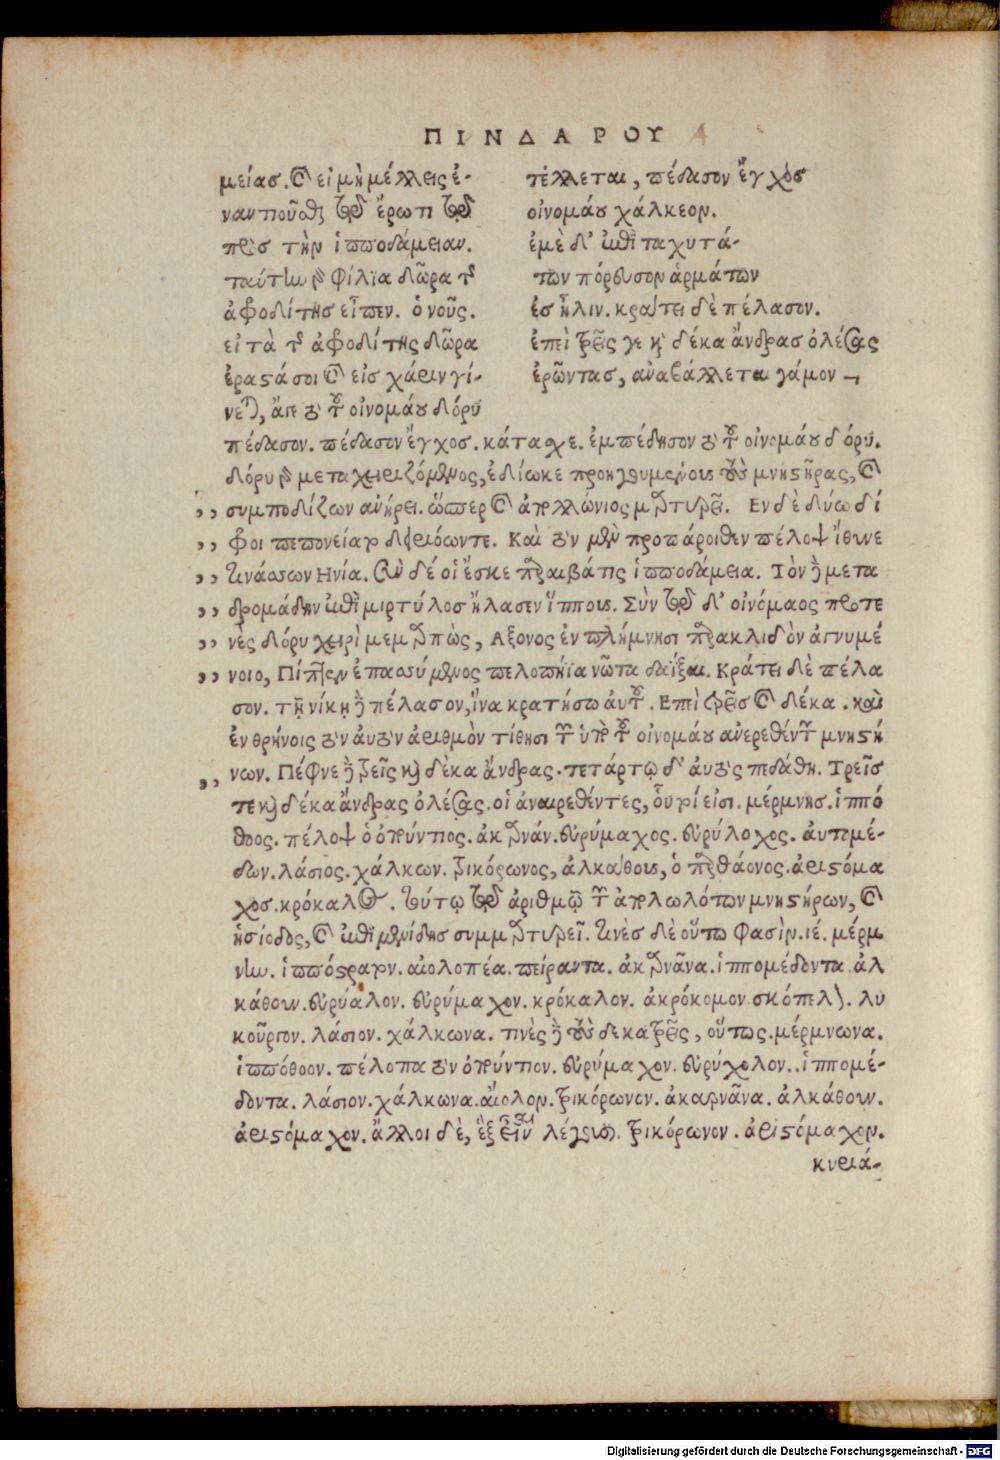 ΠΙΝΔΑΡΟΥ
μείας. καὶ εἰ μὴ μέλλεις ἐ-
ναντιοῦσθαι τῷ ἔρωτι τῷ
πρὸς τὴν ἱπποδάμειαν.
ταύτην φίλια δῶρα τῆς
ἀφροδίτης εἶπεν. ὁ νοῦς.
εἰ τὰ τῆς ἀφροδίτης δῶρα
ἐραστά σοι καὶ εἰς χάριν γί-
νεται, ἄπε τὸ τοῦ οἰνομάου δόρυ
τέλλεται, πέδασον ἔγχος
οἰνομάου χάλκεον.
ἐμὲ δ' ἐπὶ ταχυτά-
των πόρευσον ἁρμάτων
ἐς ἦλιν. κράτει δὲ πέλασον.
ἐπεὶ τρεῖς γε καὶ δέκα ἄνδρας ὀλέσας
ἐρῶντας, ἀναβάλλεται γάμον
πέδασον. πέδασον ἔγχος. κάτασχε. ἐμπέδησον τὸ τοῦ οἰνομάου δόρυ.
δόρυ μεταχειριζόμενος, ἐδίωκε προηγουμένους τοὺς μνηστῆρας, καὶ
συμποδίζων ἀνῄρει. ὥσπερ καὶ ἀπολλώνιος μαρτυρεῖ. Εν δὲ δύω δί
φροι πεπονείατο δηριόωντε. Καὶ τὸν μὲν προπάροιθεν πέλοψ ἴθυνε
τινάσσων Ηνία. σὺν δέ οἱ ἔσκε παραιβάτις ἱπποδάμεια. Τὸν δὲ μετα
δρομάδην ἐπὶ μιρτύλος ἤλασεν ἵππους. Σὺν τῷ δ' οἰνόμαος προτε
νὲς δόρυ χειρὶ μεμαρπὼς, Αξονος ἐν πλήμνησι παρακλιδὸν ἀγνυμέ
νοιο, Πίπτεν ἐπασσύμενος πελοπήϊα νῶτα δαΐξαι. Κράτει δὲ πέλα
σον. τῇ νίκῃ δὲ πέλασον, ἵνα κρατήσω αὐτοῦ. Επὶ τρεῖς καὶ δέκα. καὶ
ἐν θρήνοις τὸν αὐτὸν ἀριθμὸν τίθησι τῶν ὑπὸ τοῦ οἰνομάου ἀνερεθέντων μνηστή
νων. Πέφνε δὲ τρεῖς καὶ δέκα ἄνδρας. τετάρτῳ δ' αὐτὸς πεδάθη. Τρεῖς
τε καὶ δέκα ἄνδρας ὀλέσας. οἱ ἀναιρεθέντες, οὗτοί εἰσι. μέρμνης. ἱππό
θοος. πέλοψ ὁ ὀπούντιος. ἀκαρνάν. εὐρύμαχος. εὐρύλοχος. αὐτομέ-
δων. λάσιος. χάλκων. τρικόρωνος, ἀλκάθους, ὁ παρθάονος. ἀριστόμα
χος. κρόκαλος. τούτῳ τῷ ἀριθμῷ τῶν ἀπολωλότων μνηστήρων, καὶ
ησίοδος, καὶ ἐπιμενίδης συμμαρτυρεῖ. τινὲς δὲ οὕτω φασὶν. ιέ. μέρμ
νην. ἱππόστρατον. αἰολοπέα. πείραντα. ἀκαρνᾶνα. ἱππομέδοντα. ἀλ
κάθουν. εὐρύαλον. εὐρύμαχον. κρόκαλον. ἀκρόκομον. σκόπελον. λυ
κοῦργον. λάσιον. χάλκωνα. τινὲς δὲ τοὺς δεκατρεῖς, οὕτως. μέρμνωνα.
ἱππόθοον. πέλοπα τὸν ὀπούντιον. εὐρύμαχον. εὐρύχολον.. ἱππομέ-
δοντα. λάσιον. χάλκωνα. αἴολον. τρικόρωνον. ἀκαρνᾶνα. ἀλκάθουν.
ἀριστόμαχον. ἄλλοι δὲ, ἓξ εἶναι λέγουσι. τρικόρωνον. ἀριστόμαχον.
κυριά-
Digitalisierung gefördert durch die Deutsche Forschungsgemeinschaft - DFG